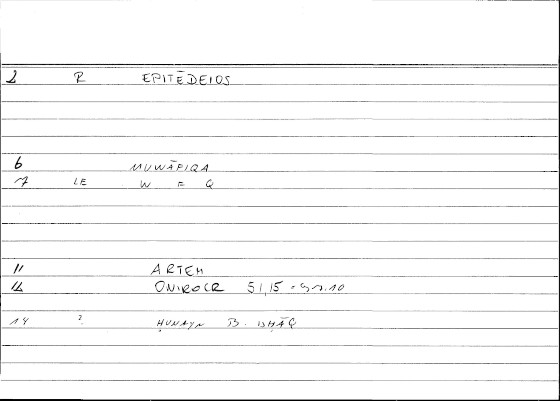 2 R EPITĒDEIOS
6 MUWĀFIQA
7 LE W F Q
11 ARTEM
12 ONIROCR 51,15 = 97.10
14 ? ḤUNAYN B. ISḤĀQ